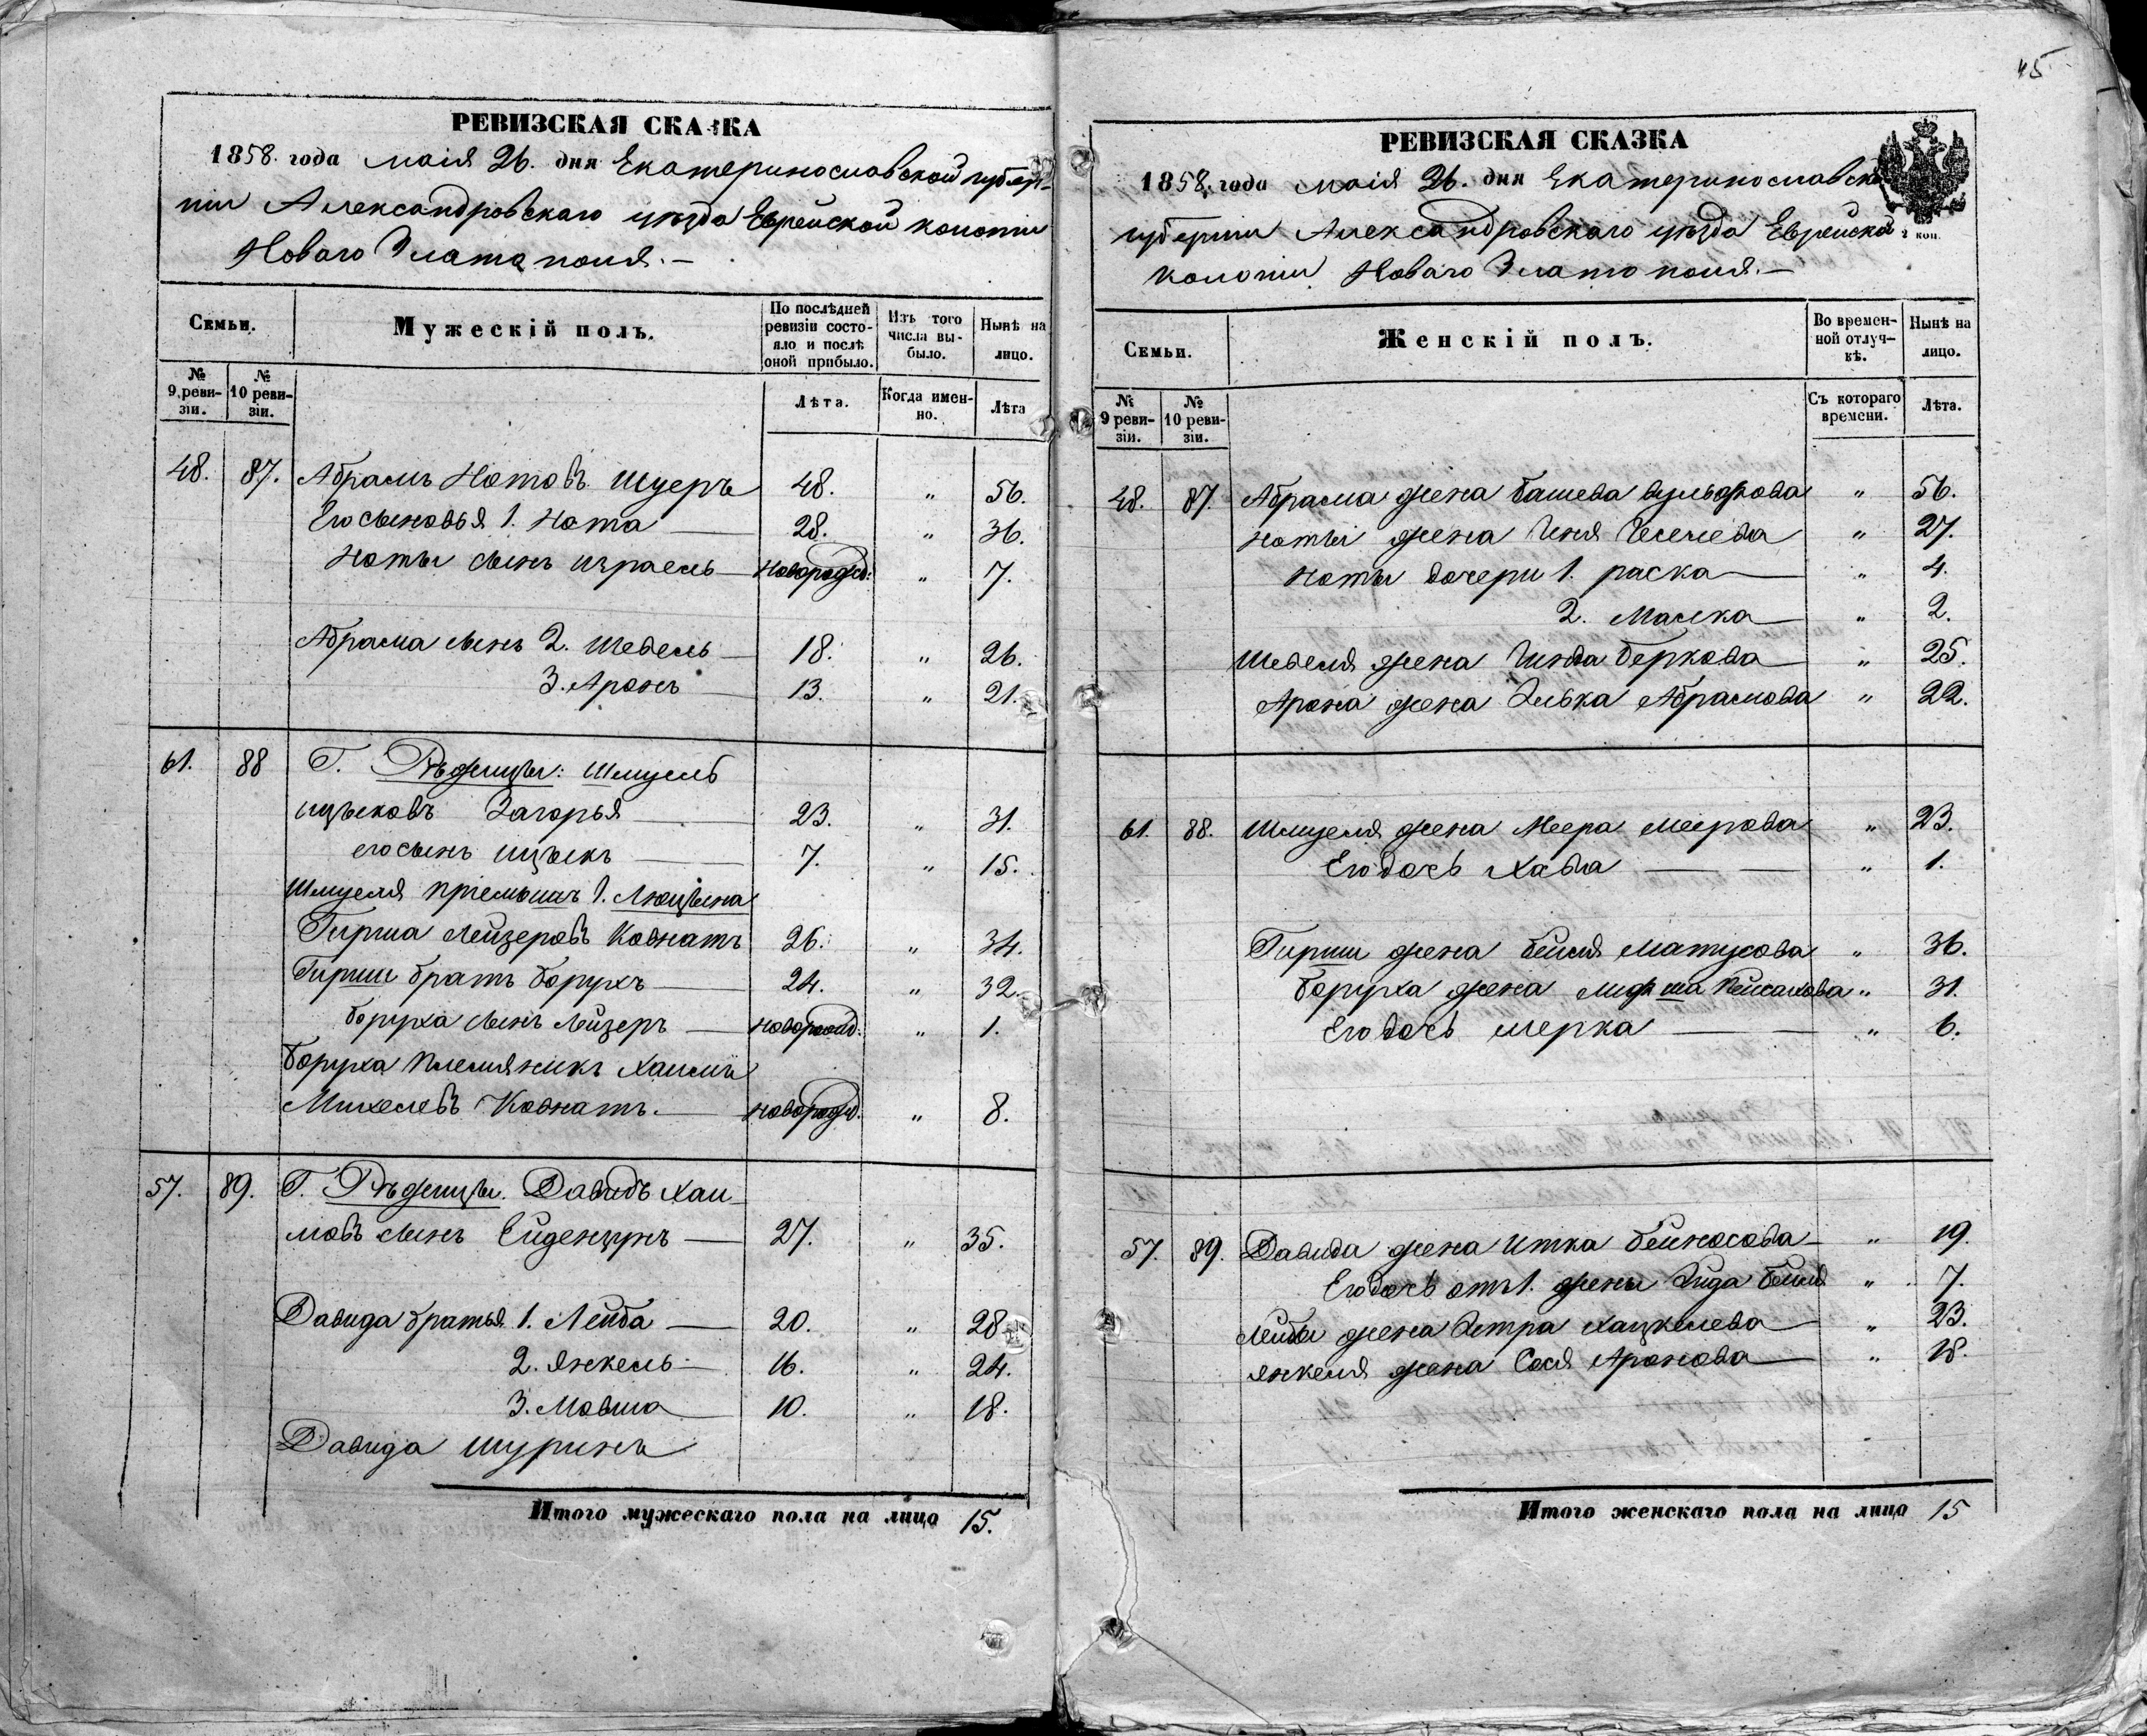 РЕВИЗСКАЯ СКАЗКА
1858. года маія 26. дня Екатеринославской губер-
ніи Александровскаго уѣзда Еврейской колоніи
Новаго Златаполя.—
Семьи.
Мужескій полъ.
По послѣдней ревизіи состо-яло и послѣ оной прибыло.
Изъ того числа вы-было.
Нынѣ на лицо.
№ 9 реви-зіи.
№ 10 реви-зіи.
Лѣта.
Когда имен-но.
Лѣта
48. 87. Абрамъ Нотовъ Шуеръ 48. " 56.
Его сыновья 1. Нота 28. " 36.
Ноты сынъ Израель новорожд: " 7.
Абрама сынъ 2. Шевель 18. " 26.
3. Аронъ 13. " 21.
61. 88 Г. Рѣжицы: Шмуель
Ицыковъ Загорья 23. " 31.
его сынъ Ицыкъ 7. " 15.
Шмуеля пріемышъ 1. Люцына
Гирша Лейзеровъ Ковнатъ 26. " 34.
Гирши братъ Борухъ 24. " 32.
Боруха сынъ Лейзеръ новорожд: " 1.
Боруха племяникъ Хаимъ
Михелевъ Ковнатъ. новорожд. " 8.
57. 89. Г. Рѣжицы. Давидъ Хаи-
мовъ сынъ Ейденцунъ 27. " 35.
Давида братья 1. Лейба 20. " 28
2. Янкель 16. " 24.
3. Мовша 10. " 18.
Давида шуринъ
Итого мужескаго пола на лицо 15.
45
РЕВИЗСКАЯ СКАЗКА
1858. года маія 26. дня Екатеринославской
губерніи Александровскаго уѣзда Еврейской
2 коп.
колоніи Новаго Златополя.—
Семьи.
Женскій полъ.
Во времен-ной отлуч-кѣ.
Нынѣ на лицо.
№ 9 реви-зіи.
№ 10 реви-зіи.
Съ котораго времени.
Лѣта.
48. 87. Абрама жена Башева Вульфова " 56.
Ноты жена " 27.
Ноты дочери 1. Раска " 4.
2. Малка " 2.
Шевеля жена Гинда Беркова " 25.
Арона жена Элька Абрамова " 22.
61. 88. Шмуеля жена Меера Меерова " 23.
Его дочь Хава " 1.
Гирши жена Бейля Матусова " 36.
Боруха жена Пейсахова " 31.
Его дочь Мерка " 6.
57. 89. Давида жена Итка Бейносова " 19.
Его дочь отъ 1. жены Бейля " 7.
Лейбы жена Эстра Хацкелева " 23.
Янкеля жена Сося Аронова " 18.
Итого женскаго пола на лицо 15